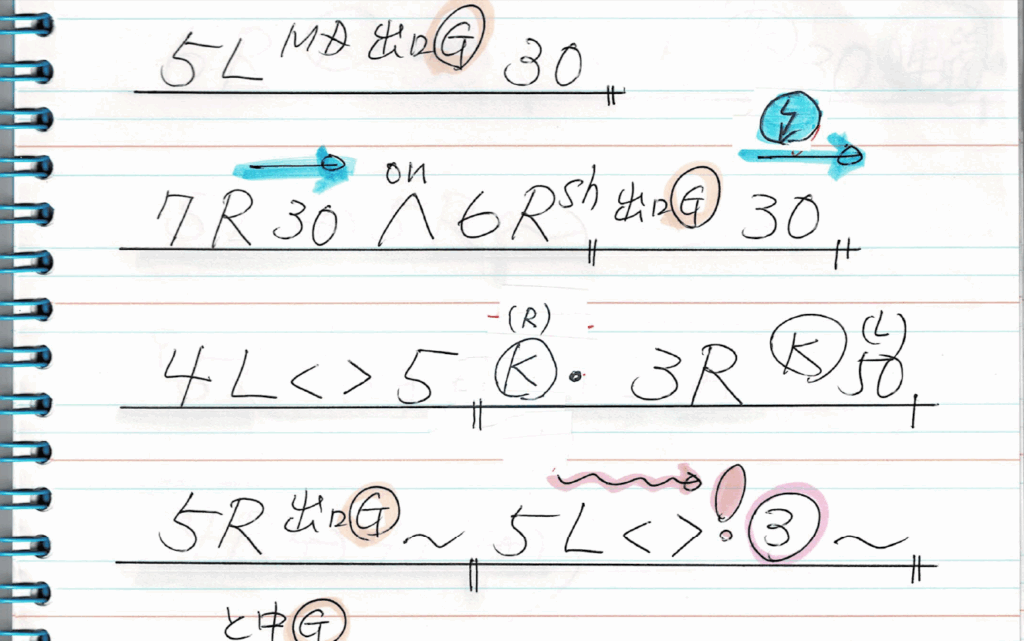 5L MD 出口 G 30
7R 30 on ∧ 6R sh 出口 G 30
(R) (L)
4L <> 5 K . 3R K 50
5R 出口 G ~ 5L <> ! 3 ~
と中 G